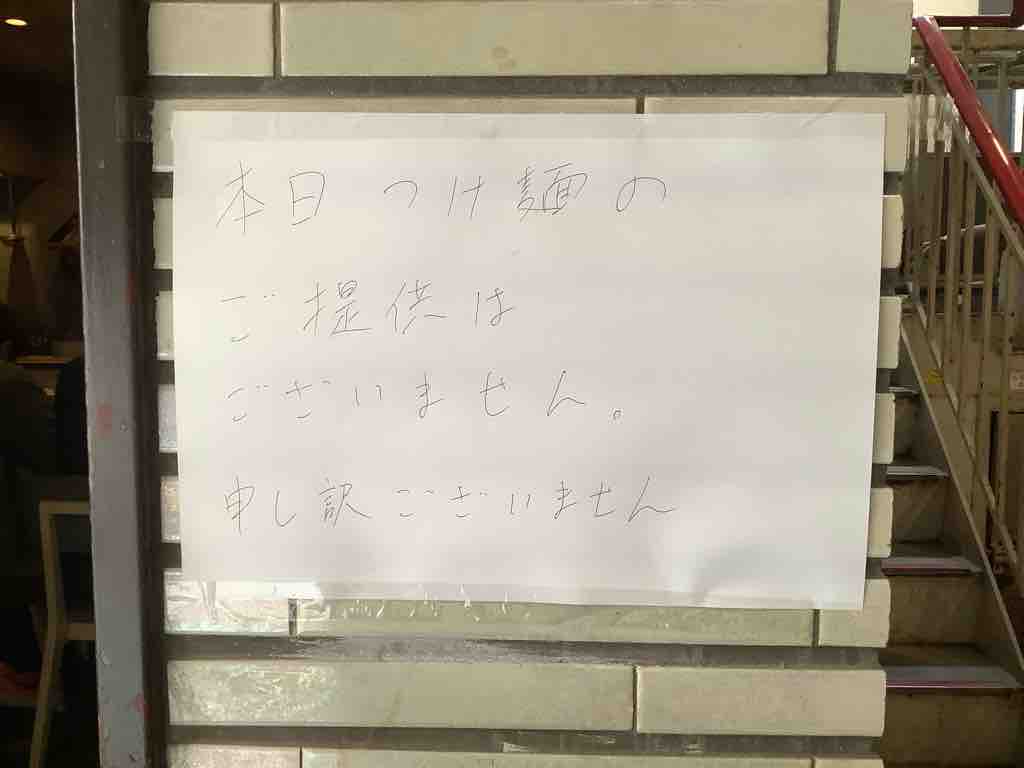 本日つけ麺の
ご提供は
ございません。
申し訳ございません